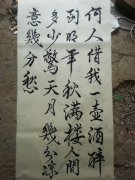 何人借我一壶酒醉
到明年秋满楼人间
多少惊天月几分凉
意几分愁